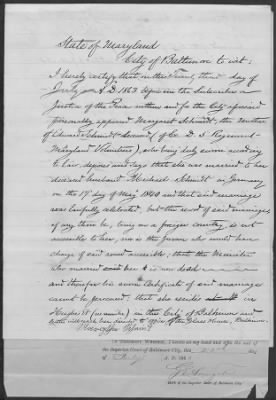 State of Maryland
City of Baltimore to wit:
I hereby certify that on this Twenty third day of
July A.D. 1863 before the Subscriber a
Justice of the Peace in and for the City aforesaid
personally appeared Margaret Schmidt, the mother
of Edward Schmidt of Co. D 5 Regiment
Maryland Volunteers, who being duly sworn according
to law, deposes and says that she was married to her
deceased husband Michael Schmidt in Germany
on the 17 day of May and that said marriage
was lawfully celebrated, but the record of said marriage
if any there be, being in a foreign country, is not
accessible to her, nor is the person who would have
charge of said record accessible; that the Minister
who married is now dead
and therefore his sworn Certificate of said marriage
cannot be procured, that she resides in
in the City of Baltimore and
In Testimony Whereof, I hereto set my hand and affix the seal of
the Superior Court of Baltimore City, this
day of July A.D. 186
Clerk of the Superior Court of Baltimore City